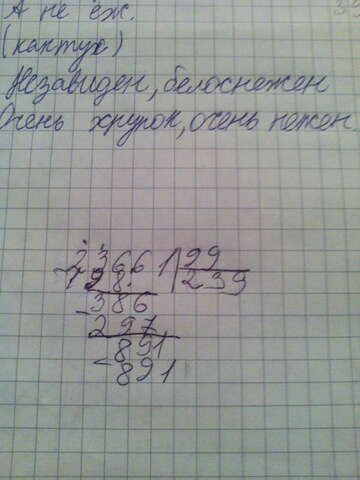 А не ёж.
(кактус)
Незавиден, белоснежен
Очень хрупок, очень нежен
23661|99
198 239
386
297
891
891